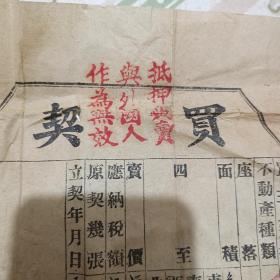 買契
抵押或賣
與外國人
作為無效
不動產種類
座落
面積
四至
賣價
應納稅額
原契幾張
立契年月日